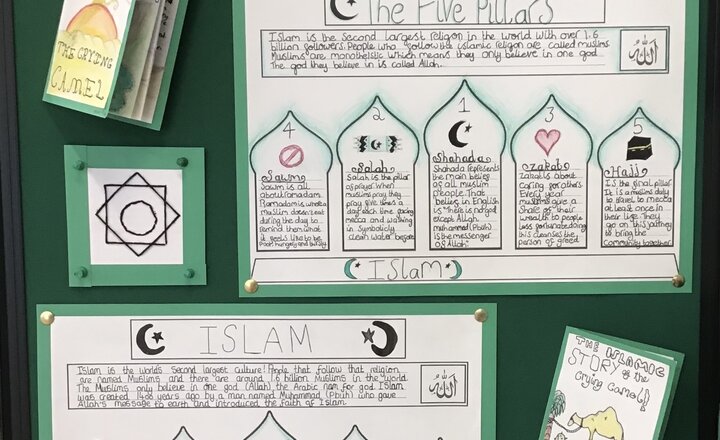 THE CRYING
CAMEL
The Five Pillars
Islam is the second largest religon in the world with over 1.6
billion followers. People who follow the islamic religon are called muslims
Muslims are monotheistic which means they only believe in one god
The god they believe in is called Allah.
الله
4
Sawm
Sawm is all
about ramadam
Ramadam is where a
muslim doesn't eat
during the day to
remind them what
it feels like to be
Poor, hungry and thirsty
2
Salah
Salah is the pillar
of prayer. When
muslims pray they
pray five times a
day each time facing
mecca and washing
in symbolicly
clean water before
1
Shahada
Shahada represents
the main belief
of all muslim
people. That
belief in English
is "there is no god
except Allah
muhammed (Pbuh)
is the messenger
of Allah"
3
Zakah
Zakat is about
caring for others
Every year
muslims give a
Share of their
wealth to people
less fortunate doing
this cleanses the
person of greed
5
Hajj
IS the final pillar
It is a muslims duty
to travel to mecca
at least once in
their life. They
go on this journey
to bring the
Community together.
Islam
ISLAM
Islam is the worlds Second largest culture! People that follow that religion
are named Muslims and there are around 1.6 billion Muslims in the world.
The Muslims only believe in one god (Allah), the Arabic nam for god. Islam
was created 1408 years ago by a man named Muhammad (Pbuh) who gave
Allah's message to earth and introduced the faith of Islam
الله
THE ISLAMIC
STORY of the
Crying Camel!